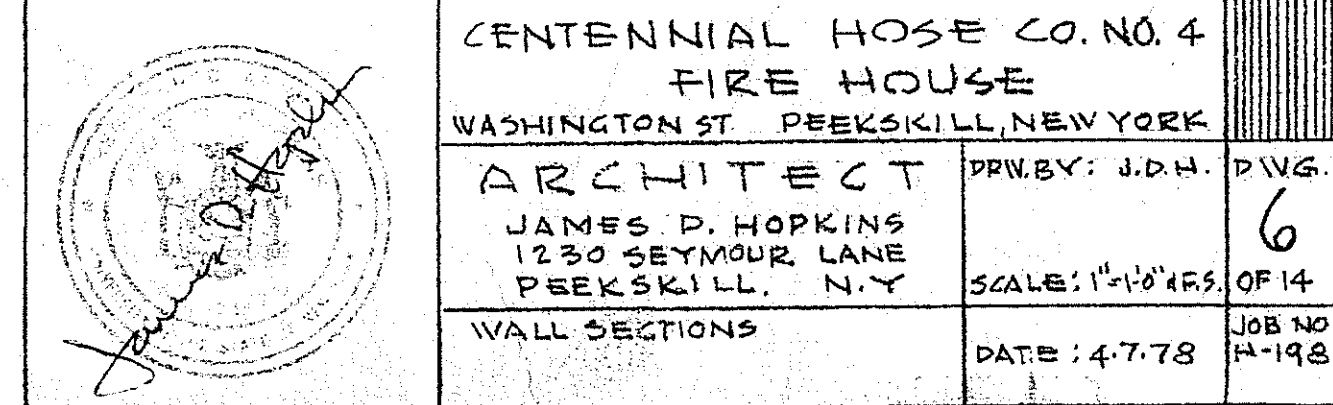 James D. Hopkins
CENTENNIAL HOSE CO. NO. 4
FIRE HOUSE
WASHINGTON ST. PEEKSKILL, NEW YORK
ARCHITECT
JAMES D. HOPKINS
1230 SEYMOUR LANE
PEEKSKILL. N.Y
DRW. BY: J.D.H.
SCALE: 1"=1'-0" & F.S.
DWG.
6
OF 14
WALL SECTIONS
DATE: 4.7.78
JOB NO
H-198